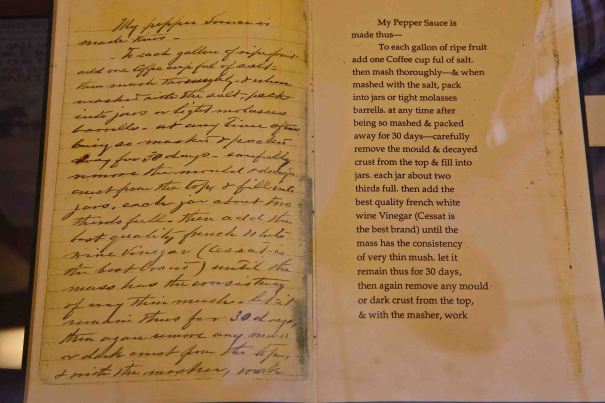 My pepper Sauce is
made thus –
To each gallon of ripe fruit
add one Coffee cup ful of salt.
then mash thoroughly – & when
mashed with the salt, pack
into jars or tight molasses
barrells. at any time after
being so mashed & packed
away for 30 days – carefully
remove the mould & decayed
crust from the top, & fill into
jars. each jar about two
thirds full. then add the
best quality french white
wine Vinegar (Cessat is
the best brand) until the
mass has the consistency
of very thin mush. let it
remain thus for 30 days,
then again remove any mould
or dark crust from the top,
& with the masher, work
My Pepper Sauce is
made thus—
To each gallon of ripe fruit
add one Coffee cup ful of salt.
then mash thoroughly—& when
mashed with the salt, pack
into jars or tight molasses
barrells. at any time after
being so mashed & packed
away for 30 days—carefully
remove the mould & decayed
crust from the top & fill into
jars. each jar about two
thirds full. then add the
best quality french white
wine Vinegar (Cessat is
the best brand) until the
mass has the consistency
of very thin mush. let it
remain thus for 30 days,
then again remove any mould
or dark crust from the top,
& with the masher, work